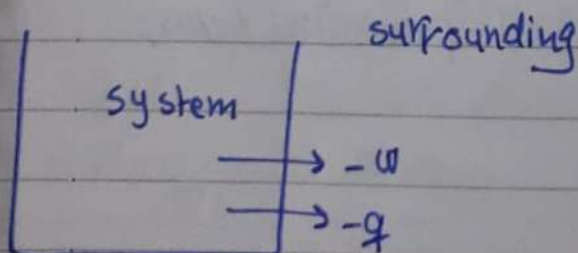 surrounding
system
-w
-q